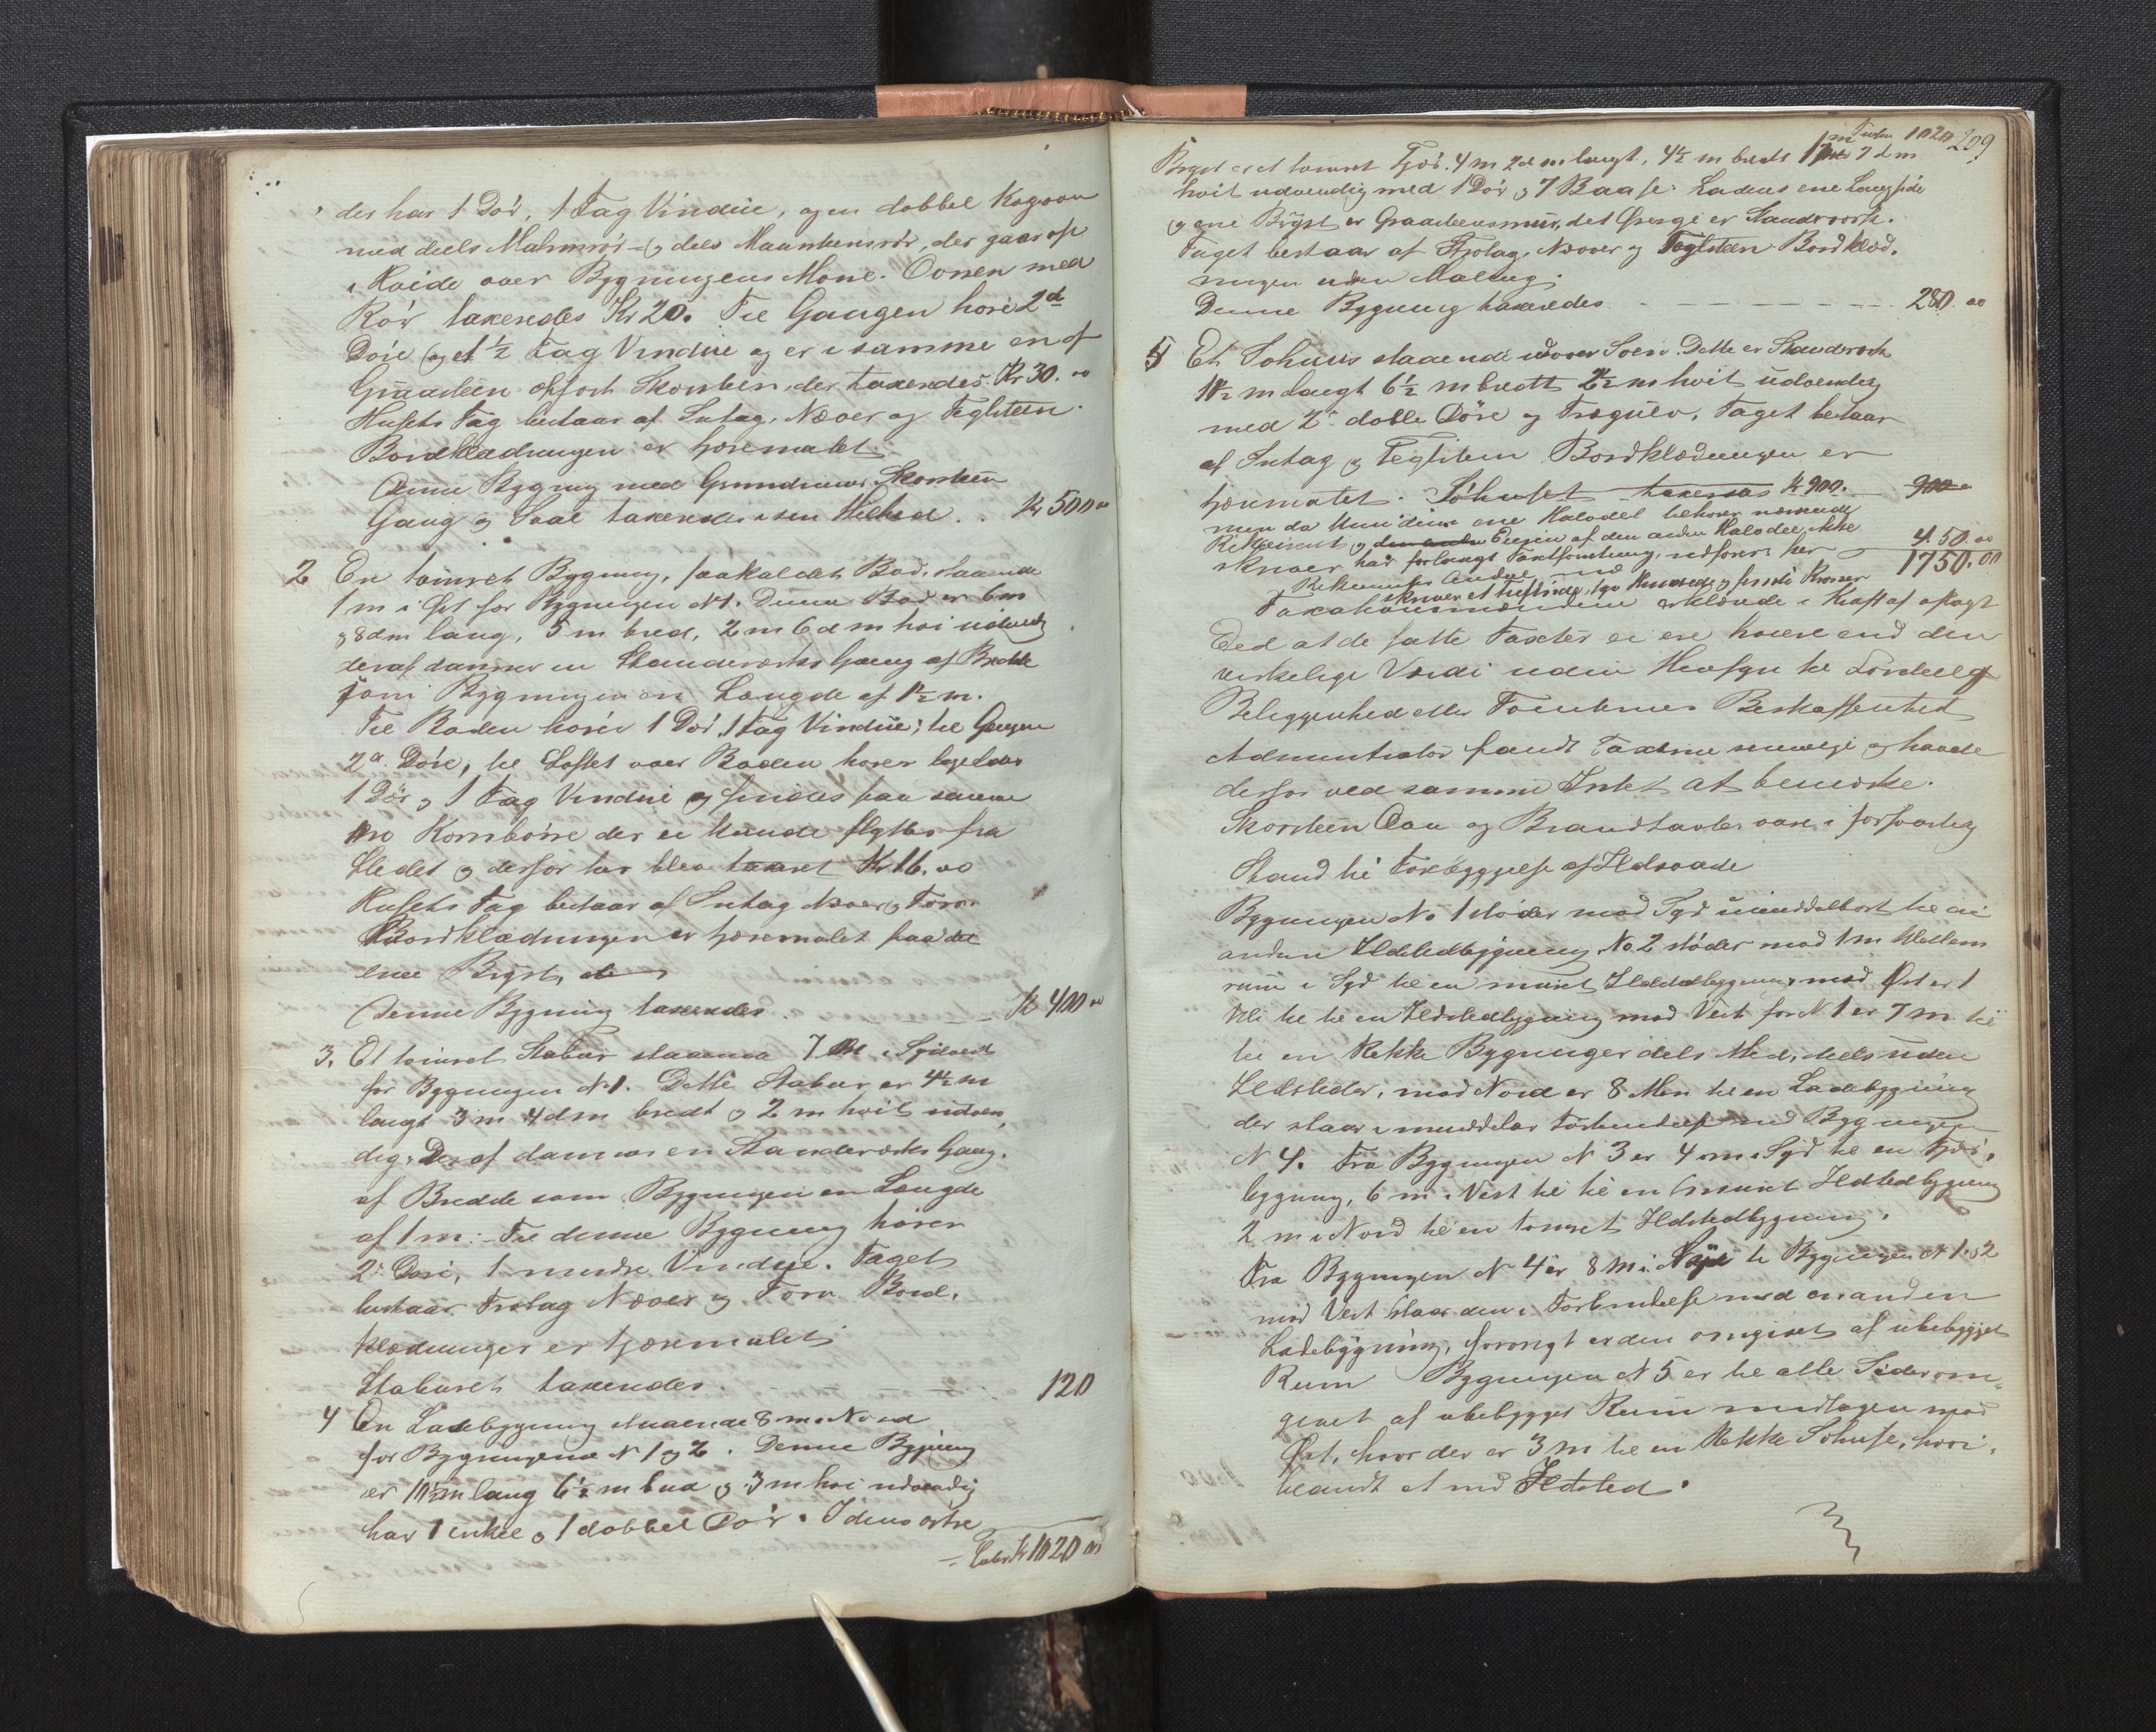 der har 1 Dør, 1 Fag Vindue, og en dobbel Kogovn
med deels Malmrør og deels Muurstensrør, der gaar op
i Høide over Bygningens Møne. Ovnen med
Rør taxeredes Kr 20. Til Gangen hører 2de
Døre og et ½ Fag Vindue og er i samme en af
Graasteen opført Skorsteen, der taxeredes Kr 30.00
Husets Tag bestaar af Sutag, Næver og Teglsteen.
Bordklædningen er tjæremalet.
Denne Bygning med Grundmuur, Skorsteen
Gang og Sval taxeredes i sin Helhed .. Kr 500 00
2 En tømret Bygning, saakaldet Bod, staaende
1 m i Øst for Bygningen N 1. Denne Bod er 6 m
og 8 dm lang, 5 m bred, 2 m 6 dm høi udvendig
deraf danner en Standværks Gang af Bredde
som Bygningen en Længde af 1½ m.
Til Boden hører 1 Dør 1 Fag Vindue; til Gangen
2de Døre, til Loftet over Boden hører ligeledes
1 Dør og 1 Fag Vindue og findes paa samme
en Kornbørre der ei kunde flyttes fra
Stedet og derfor her blev taxeret Kr 16.00
Husets Tag bestaar af Sutag Næver og Torv.
Bordklædningen er tjæremalet paa det
ene Bryst
Denne Bygning taxeredes Kr 400 00
3. Et tømret Stabur staaende 7 m i Sydvest
for Bygningen N 1. Dette Stabur er 4½ m
langt 3 m 4 dm bredt og 2 m høit udven-
dig. Deraf danner en Standværks Gang.
af Bredde som Bygningen en Længde
af 1 m. Til denne Bygning hører
2de Døre, 1 mindre Vindue. Taget
bestaar Trotag Næver og Torv. Bord-
klædningen er tjæremalet
Staburet taxeredes. 120
4 En Ladebygning staaende 8 m i Nord
for Bygningerne N 1 og 2. Denne Bygning
er 10½ m lang 6½ m bred og 3 m høi udvendig
har 1 enkel og 1 dobbel Dør. I dens østre
Kr 1020 00
1020 209
Bryst er et tømret Fjøs, 4 m 2 dm langt, 4½ m bredt 1 m 7 dm
høit udvendig med 1 Dør og 7 Baase. Ladens ene Langside
og ene Bryst er Graasteensmuur, det Øvrige er Standværk.
Taget bestaar af Trolag, Næver og Teglsteen. Bordklæd-
ningen uden Maling.
Denne Bygning taxeredes 280.00
5 Et Søhuus staaende udover Søen. Dette er Standværk
11½ m langt 6½ m bredt 2½ m høit udvendig
med 2de doble Døre og Trægulv. Taget bestaar
af Sutag og Teglsteen Bordklædningen er
tjæremalet. Søhuset taxeres Kr 900. 900
men da kun dens ene Halvdel tilhører nærværende
Rekvirent og Eieren af den anden Halvdel ikke
har forlangt Taxtforretning, udføres her 4.50.00
1750.00
Rekvirentens Andel med
skriver et tusinde, syv Hundrede og femti Kroner
Taxationsmændene erklærede i Kraft af aflagt
Eed at de satte Taxter ei ere høiere end den
virkelige Værdi uden Hensyn til Fordeel af
Beliggenhed eller Tomternes Beskaffenhed
Administrator fandt Taxterne rimelige og havde
derfor ved samme Intet at bemærke.
Skorsteen Ovn og Brandtavler vare i forsvarlig
Stand til Forebyggelse af Ildsvaade
Bygningen No 1 støder mod Syd umiddelbart til en
anden Ildstedbygning, No 2 støder med 1 m Mellem
rum i Syd til en muret Ildstedbygning, mod Øst er 1
til en Ildstedbygning mod Vest for N 1 er 7 m til
til en Række Bygninger dels Med, deels uden
Ildsteder, mod Nord er 8 Men til en Ladebygning
der staar i middelbar Forbindelse med Bygningen
N 4. Fra Bygningen N 3 er 4 m i Syd til en Fjøs-
bygning, 6 m i Vest til en muret Ildstedbygning
2 m i Nord til en tømret Ildstedbygning.
Fra Bygningen N 4 er 8 m i Syd til Bygningen N 1 og 2
mod Vest staar den i Forbindelse med en anden
Ladebygning, forøvrigt er den omgivet af ubebygget
Rum Bygningen N 5 er til alle Sider om-
givet af ubebygget Rum undtagen mod
Øst, hvor der er 3 m til en Række Søhuse, hvori-
blandt et med Ildsted.